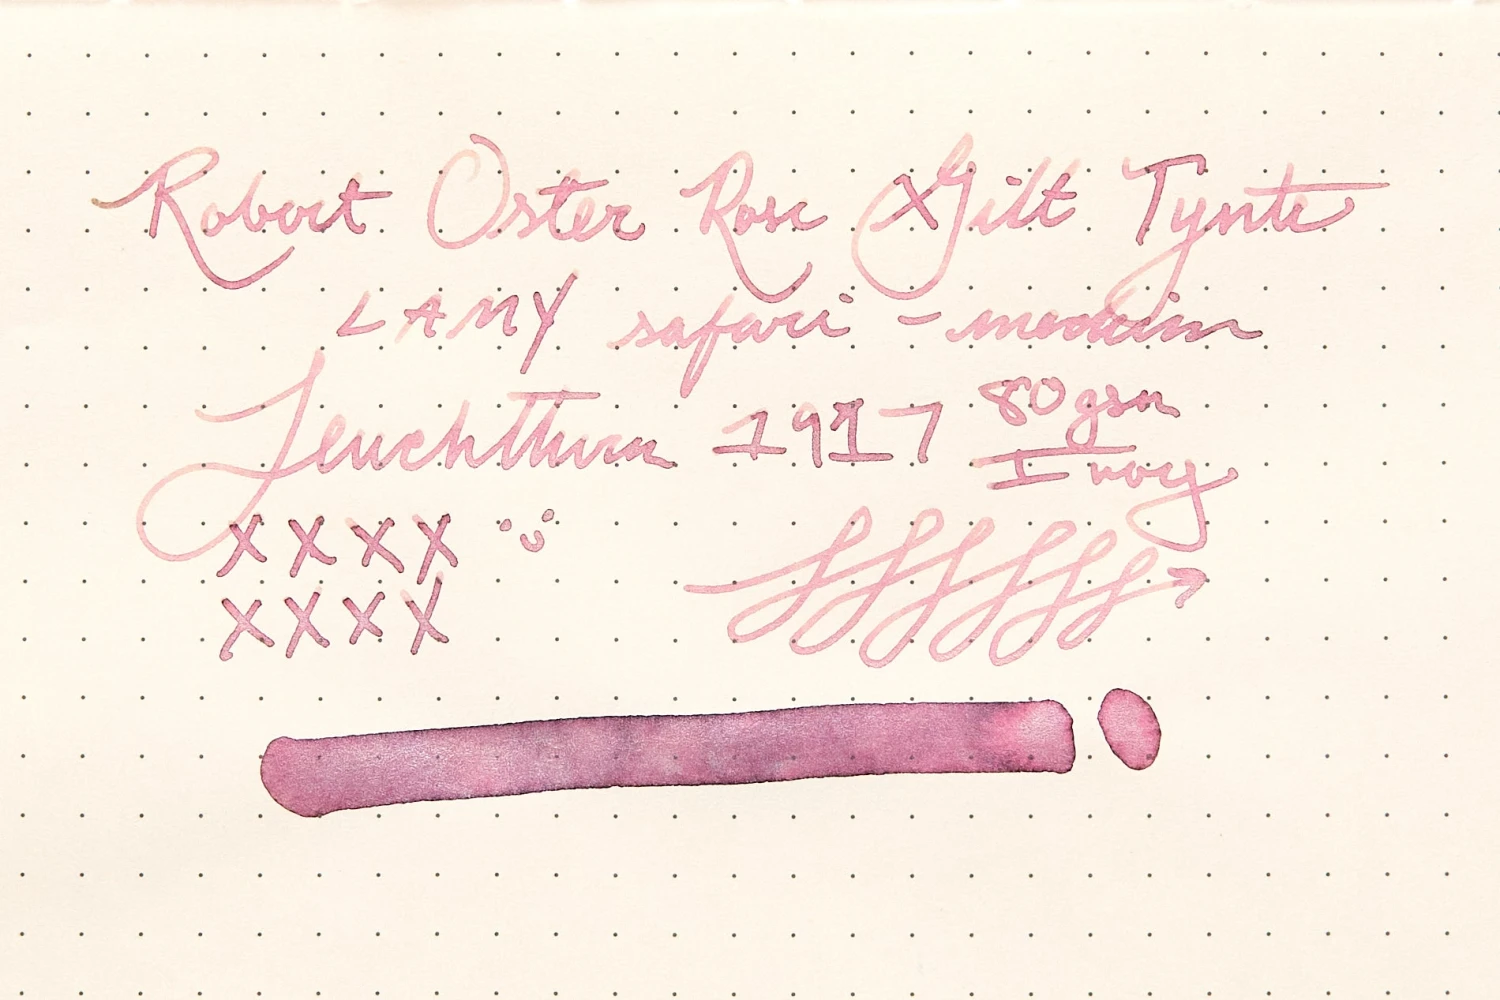 Robert Oster Rose Gilt Tynte
LAMY safari - medium
Leuchtturm 1917 80gsm
Ivory
x x x x
x x x x